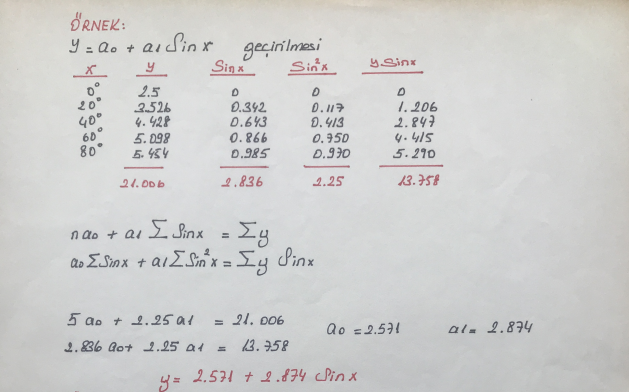 ÖRNEK:
y = a0 + a1 Sinx geçirilmesi
x y Sinx Sin²x y Sinx
0° 2.5 0 0 0
20° 3.526 0.342 0.117 1.206
40° 4.428 0.643 0.413 2.847
60° 5.098 0.866 0.750 4.415
80° 5.454 0.985 0.970 5.290
21.006 2.836 2.25 13.758
na0 + a1 Σ Sinx = Σy
a0 ΣSinx + a1 Σ Sin²x = Σy Sinx
5 a0 + 2.25 a1 = 21.006 a0 = 2.571 a1 = 2.874
2.836 a0 + 2.25 a1 = 13.758
y = 2.571 + 2.874 Sinx